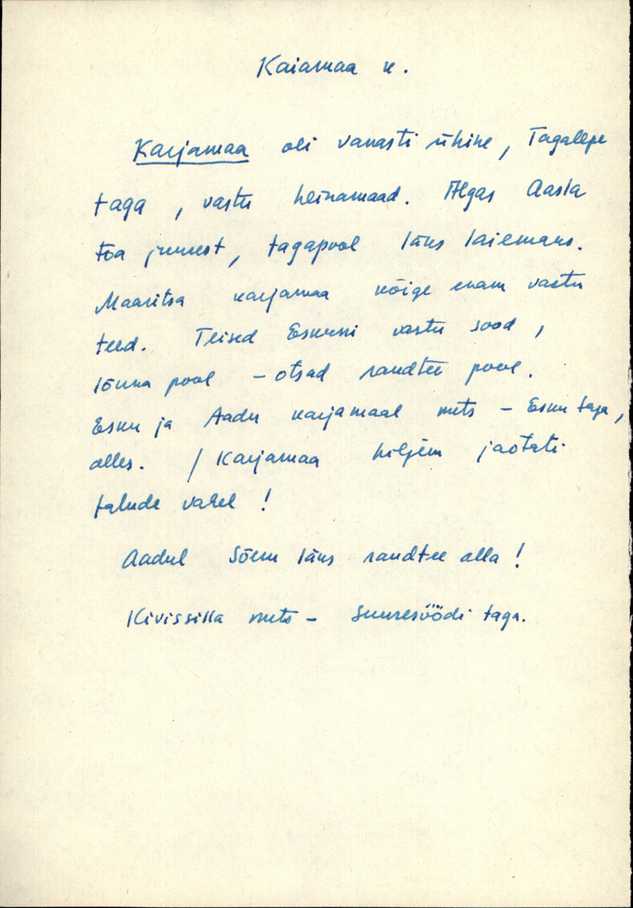 Kaiamaa k.
Karjamaa oli vanasti ühine, Tagalepe
taga, vastu heinamaad. Algas Aasla
toa juurest, tagapool läks laiemaks.
Maaritsa karjamaa kõige enam vastu
teed. Teised vastu sood,
lõuna pool - otsad randtee pool.
Esku ja Aadu karjamaal mets - Esku taga,
alles. / Karjamaa hiljem jaotati
talude vahel!
Aadul Sõeru läks randtee alla!
Kivissilla mets - Suuresöödi taga.